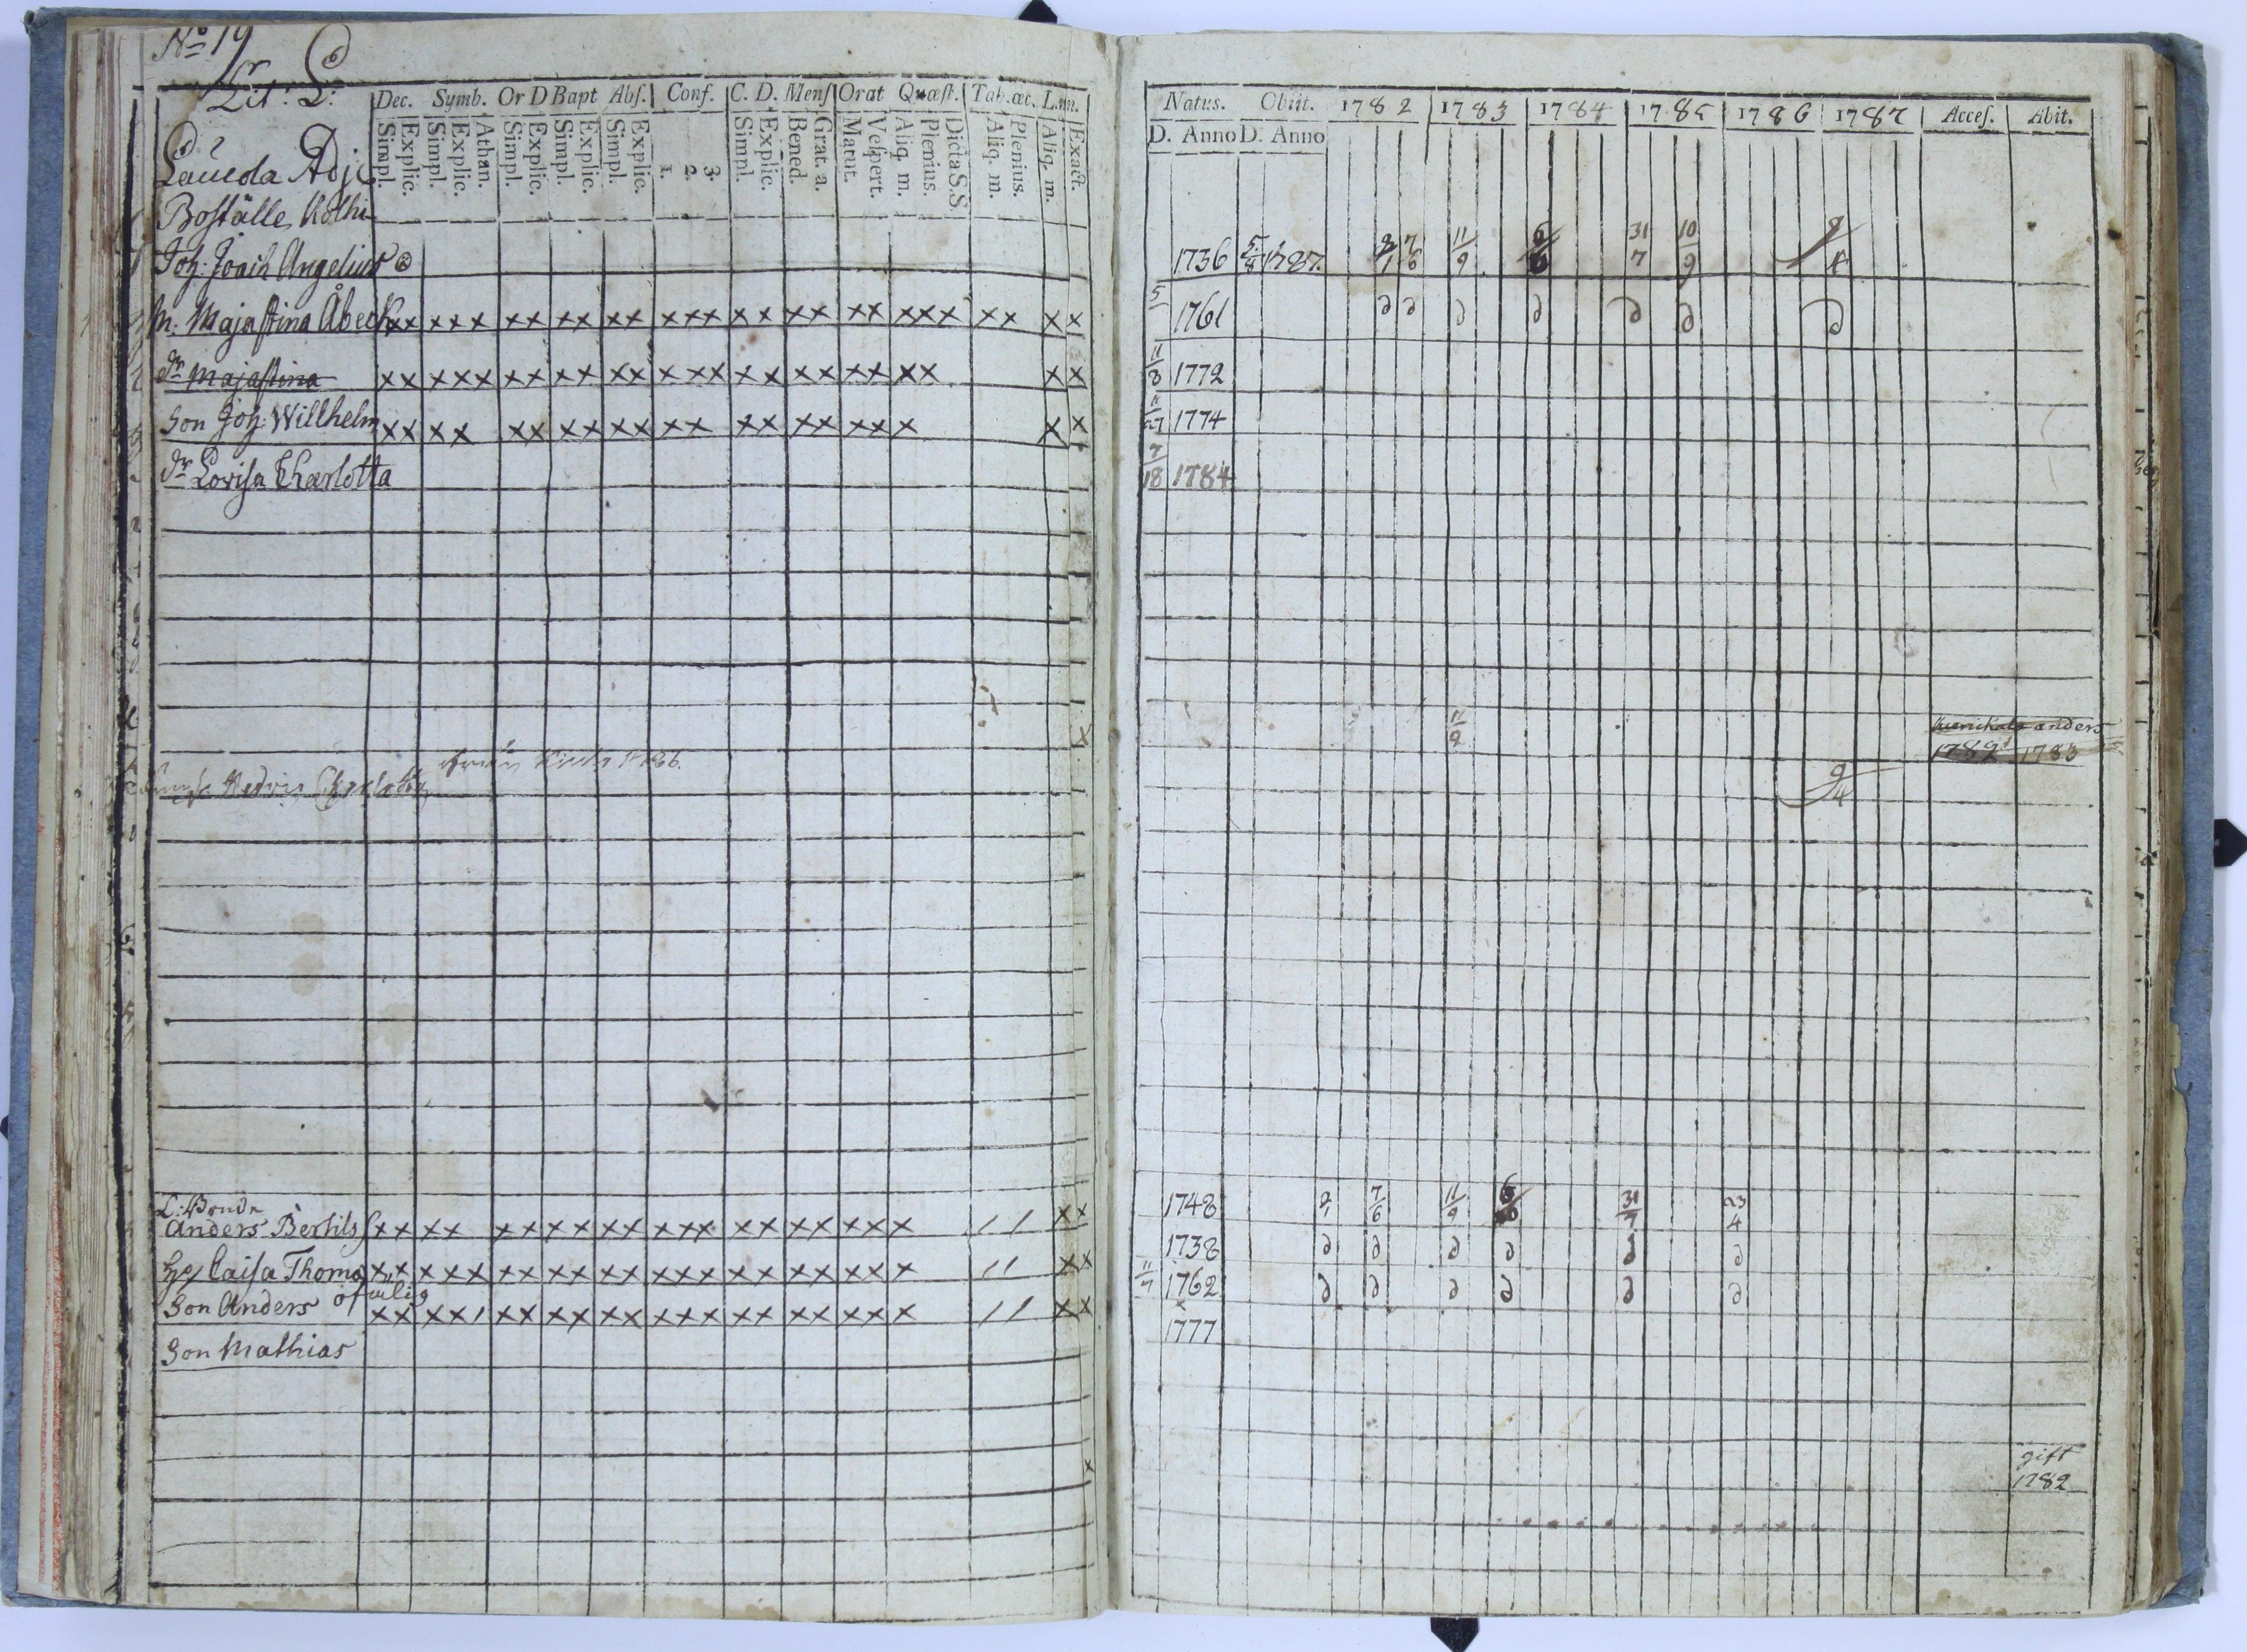 No 19
Lit: L:
Dec. Symb. Or D Bapt Abſ. Conf. C. D. Menſ Orat Quæſt. Tab. œc. L.m.
Simpl. Explic. Simpl. Explic. Athan. Simpl. Explic. Simpl. Explic. Simpl. Explic. 1. 2. 3. Simpl. Explic. Bened. Grat. a. Matut. Veſpert. Aliq. m. Plenius. Dicta S.S. Aliq. m. Plenius. Aliq. m. Exact.
Laucola Adj:
Boſtälle
Joh: Joach Angelius
M. Majaſtina Åbeck xx xxx xx xx xx xxx xx xx xx xxx xx x x
dr Majaſtina xx xxx xx xx xx xxx xx xx xx xx x x
Son Joh: Willhelm xx xx xx xx xx xx xx xx xx x x x
dr Loviſa Charlotta
x
Hedvig Charlotta
L: Bonde
Anders Bertilsſ xx xx xx xx xx xxx xx xx xx x / / x x
Caiſa Thoma xx xxx xx xx xx xxx xx xx xx x / / x x
Son Anders xx xx/ xx xx xx xxx xx xx xx x / / x x
Son Mathias
x
Natus. Obiit. 1782 1783 1784 1785 1786 1787 Acceſ. Abit.
D. Anno D. Anno
1736 5/8 1787. 2/1 7/6 11/9 6/6 31/7 10/9 9/4
5 1761 ∂ ∂ ∂ ∂ ∂ ∂ ∂
11/8 1772
11/27 1774
7/18 1784
11/9
anders
1782 1783
9/4
1748 2/1 7/6 11/9 6/6 31/7 23/4
1738 ∂ ∂ ∂ ∂ ∂ ∂
11/7 1762 ∂ ∂ ∂ ∂ ∂ ∂
x
1777
gift
1782